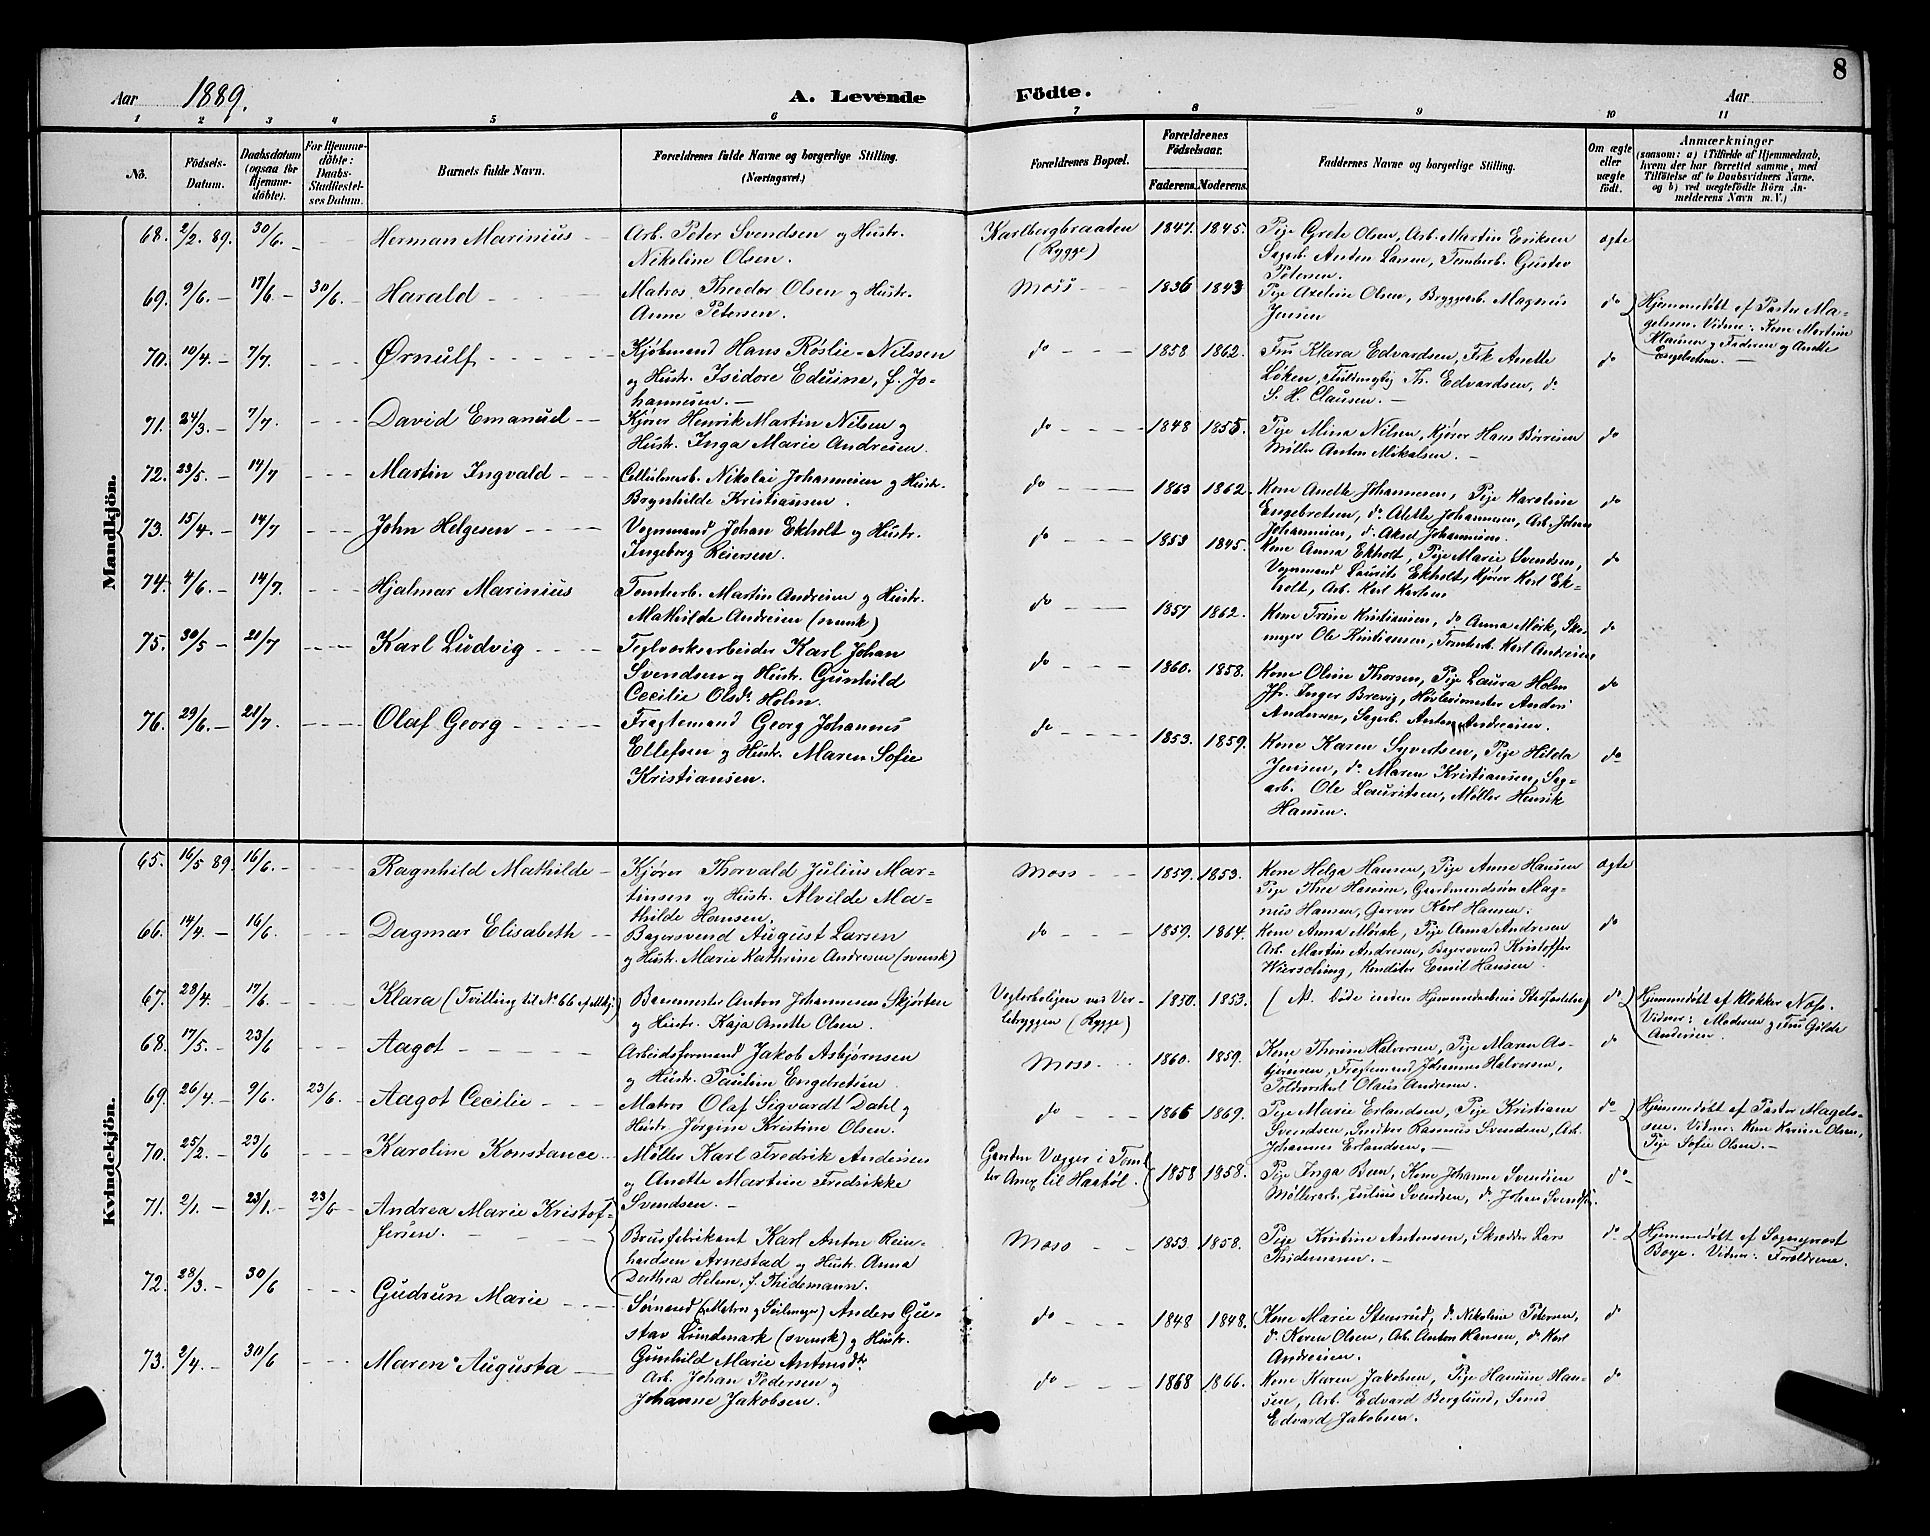 8
Aar 1889. A. Levende Födte. Aar
1 2 3 4 5 6 7 8 9 10 11
No. Födsels-Datum. Daabsdatum (ogsaa for Hjemmedöbte). For Hjemmedöbte: Daabs-Stadfæstelses Datum. Barnets fulde Navn. Forældrenes fulde Navne og borgerlige Stilling. (Næringsvei.) Forældrenes Bopæl. Forældrenes Födselsaar. Faderens. Moderens. Faddernes Navne og borgerlige Stilling. Om ægte eller uægte födt. Anmærkninger (saasom: a) i Tilfælde af Hjemmedaab, hvem der har forrettet samme, med Tilföielse af to Daabsvidners Navne, og b) ved uægtefödte Börn Anmelderens Navn m.V.)
Mandkjön.
68. 2/2 89. 30/6. Herman Marinius Arb. Peter Svendsen og Hustr. Karlbergbraaten 1847. 1845. Pige Grete Olsen, Arb. Martin Eriksen ægte
Nikoline Olsen. (Rygge) Sagarb. Anton Larsen, Tomterb. Gustav
Petersen.
69. 9/6. 17/6 30/6. Harald Matros Theodor Olsen og Hustr. Moss 1836 1843 Pige Axeline Olsen, Bryggearb. Magnus do Hjemmedøbt af Pastor Ma-
Anne Petersen. Jensen gelssen. Vidner: Kone Martine
Hansen og Faderen og Anette
Engebretsen.
70. 10/4. 7/7. Ørnulf Kjøbmand Hans Røslie-Nilssen do 1858 1862. Fru Klara Edvardsen, Frk Anette do
og Hustr. Isidore Eduine, f. Jo- Løken, Fuldmægtig Th. Edvardsen, do
hannesen. S. H. Clausen.
71. 24/3. 7/7. David Emanuel Kjører Henrik Martin Nilsen og do 1848 1855. Pige Mina Nilsen, Kjører Hans Børresen do
Hustr. Inga Marie Andresen. Møller Anton Mikalsen.
72. 23/5. 14/7 Martin Ingvald Cellulosearb. Nikolai Johannesen og Hustr. do 1863 1862. Kone Anette Johannesen, Pige Karoline do
Brynhilde Kristiansen. Engebretsen, do. Alette Johannesen, Arb. Johan
Johannesen, do. Aksel Johannesen.
73. 15/4. 14/7 John Helgesen Vognmand Johan Ekholt og Hustr. do 1853 1845. Kone Anna Ekholt, Pige Marie Svendsen, do
Ingeborg Reiersen. Vognmand Laurits Ekholt, Kjører Karl Ek-
holt, Arb. Karl Karlsen
74. 4/6. 14/7. Hjalmar Marinius Tomterb. Martin Andresen og Hustr. do 1857 1862. Kone Trine Kristiansen, do Anna Mørk, Sko- do
Mathilde Andresen (svensk) mager Ole Kristiansen, Tomterb. Karl Andresen
75. 30/5 21/7 Karl Ludvig Teglværksarbeider Karl Johan do 1860. 1858. Kone Oline Thorsen, Pige Laura Holm do
Svendsen og Hustr. Gunhild Jfr. Inger Brevig, Høvlerimester Anders
Cecilie Olsdr. Holm. Andersen, Sagarb. Anton Andresen.
76. 29/6. 21/7. Olaf Georg Fragtemand Georg Johannes do 1853. 1859. Kone Karen Syvertsen, Pige Hilda do
Ellefsen og Hustr. Maren Sofie Jensen, do. Maren Kristiansen, Sag-
Kristiansen. arb. Ole Lauritsen, Møller Henrik
Hansen.
Kvindekjön.
65. 16/5 89. 16/6. Ragnhild Mathilde Kjører Thorvald Julius Mar- Moss 1859. 1853. Kone Helga Hansen, Pige Anne Hansen ægte
tinsen og Hustr. Alvilde Ma- Pige Thea Hansen, Gaardmandssøn Mag-
thilde Hansen. nus Hansen, Garver Karl Hansen.
66. 14/4. 16/6. Dagmar Elisabeth Bagersvend August Larsen do 1859. 1864. Kone Anna Mørk, Pige Anna Andresen do
og Hustr. Marie Kathrine Andresen (svensk) Arb. Martin Andresen, Bagersvend Kristoffer
Wiersching, Konditor Emil Hansen.
67. 28/4. 17/6. Klara (Tvilling til No 66 af Mkj.) Banemester Anton Johannesen Skjørten Vogterboligen ved Ver- 1850. 1853. (N. døde inden Hjemmedaabens Stadfæstelse) do Hjemmedøbt af Klokker Næss.
og Hustr. Kaja Anette Olsen. lebryggen (Rygge) Vidner: Moderen og Fru Gilde
Andersen.
68. 17/5. 23/6 Aagot Arbeidsformand Jakob Asbjørnsen Moss 1860. 1859. Kone Thorine Halvorsen, Pige Maren As- do
og Hustr. Pauline Engebretsen. bjørnsen, Fragtemand Johannes Halvorsen,
Toldrorskarl Olaus Andresen.
69. 26/4. 9/6. 23/6. Aagot Cecilie Matros Olaf Sigvardt Dahl og do 1866 1869. Pige Marie Erlandsen, Pige Kristiane do Hjemmedøbt af Pastor Magels-
Hustr. Jørgine Kristine Olsen. Svendsen, Snedker Rasmus Svendsen, Arb. sen. Vidner: Kone Karine Olsen,
Johannes Erlandsen. Pige Sofie Olsen.
70. 25/2. 23/6 Karoline Konstance Møller Karl Fredrik Andersen Gaarden Vægger i Tomt- 1858 1958. Pige Inga Been, Kone Johanne Svendsen do
og Anette Martine Fredrikke ter Anex til Haabøl. Møllerarb. Julius Svendsen, do. Johan Svendsen
Svendsen.
71. 2/1. 23/1. 23/6 Andrea Marie Kristof- Brusfabrikant Karl Anton Rein- Moss 1853. 1858. Pige Kristine Antonsen, Skrædder Lars do Hjemmedøbt af Sogneprest
fersen. hardsen Arnestad og Hustr. Anna Thidemann. Boye. Vidner: Forældrene.
Dorthea Helene, f. Thidemann.
72. 28/3. 30/6 Gudrun Marie Sømand (Matros og Seilmager) Anders Gu- do 1848 1848. Kone Marie Stensrud, do. Nikoline Petersen, do
stav Lindmark (svensk) og Hustr. do. Karen Olsen, Arb. Anton Hansen, do. Karl
Gunhild Marie Antonsdtr. Andresen.
73. 2/4. 30/6 Maren Augusta Arb. Johan Pedersen og do 1868 1866. Kone Karen Jakobsen, Pige Hansine Han- do
Johanne Jakobsen. sen, Arb. Edvard Berglund, Smed
Edvard Jakobsen.